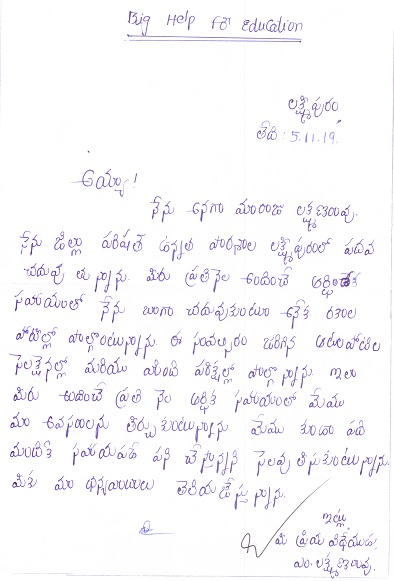 Big Help For Education
లక్ష్మీపురం
తేది : 5.11.19.
అయ్యా!
నేను అనగా మంరాజు లక్ష్మణరావు.
నేను జిల్లా పరిషత్ ఉన్నత పాఠశాల లక్ష్మీపురంలో పదవ
చదువు తు న్నాను. మీరు ప్రతినెల అందించే ఆర్థిక
సహాయంతో నేను బాగా చదువుకుంటూ అనేక రకాల
పోటీల్లో పాల్గొంటున్నాను. ఈ సంవత్సరం జరిగిన ఆటలపోటీల
సెలక్షన్లల్లో మరియు పరీక్షల్లో పాల్గొన్నాను. ఇలా
మీరు అందించే ప్రతి నెల ఆర్థిక సహాయంలో మేము
మా అవసరాలను తీర్చుకుంటున్నాను. మేము కూడా పది
మందికి సహాయపడే పని చేస్తానని సెలవు తీసుకుంటున్నాను.
మీకు మా ధన్యవాదాలు తెలియజేస్తున్నాను.
ఇట్లు
మీ ప్రియ విధేయుడు.
ఎం. లక్ష్మణరావు.